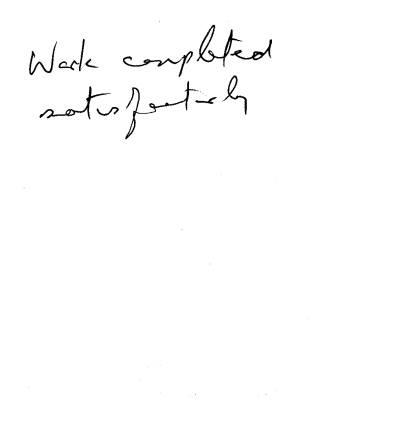 Work completed
satisfactorily